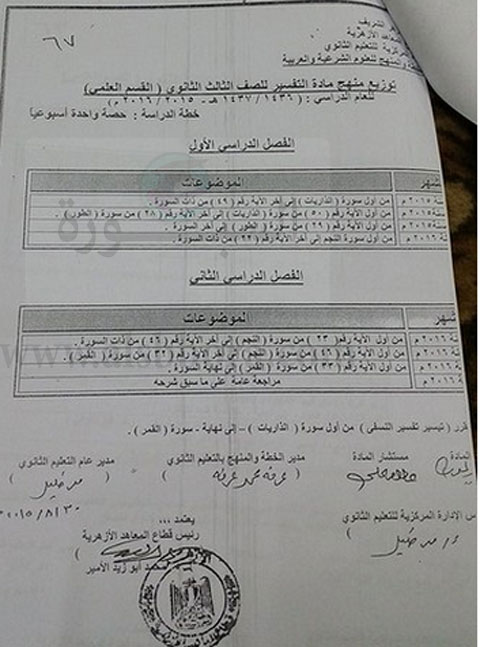 ٦٧
الشريف
المعاهد الأزهرية
ركزية للتعليم الثانوي
والمنهج للعلوم الشرعية والعربية
توزيع منهج مادة التفسير للصف الثالث الثانوي ( القسم العلمي)
للعام الدراسي : ( ١٤٣٦ / ١٤٣٧ هـ - ٢٠١٥ / ٢٠١٦ م )
خطة الدراسة : حصة واحدة أسبوعياً
الفصل الدراسي الأول
شهر الموضوعات
سنة ٢٠١٥ م من أول سورة ( الذاريات ) إلى آخر الآية رقم ( ٤٩ ) من ذات السورة .
سنة ٢٠١٥ م من أول الآية رقم ( ٥٠ ) من سورة ( الذاريات ) إلى آخر الآية رقم ( ٢٨ ) من سورة ( الطور) .
سنة ٢٠١٥ م من أول الآية رقم ( ٢٩ ) من سورة ( الطور ) إلى آخر السورة .
نة ٢٠١٦ م من أول سورة النجم إلى آخر الآية رقم ( ٢٢ ) من ذات السورة .
الفصل الدراسي الثاني
شهر الموضوعات
نة ٢٠١٦ م من أول الآية رقم( ٢٣ ) من سورة ( النجم ) إلى آخر الآية رقم ( ٤٦ ) من ذات السورة .
نة ٢٠١٦ م من أول الآية رقم ( ٤٦ ) من سورة ( النجم ) إلى آخر الآية رقم ( ٣٢ ) من سورة ( القمر ) .
نة ٢٠١٦ م من أول الآية رقم ( ٣٣ ) من سورة ( القمر ) إلى نهاية السورة .
ة ٢٠١٦ م مراجعة عامة على ما سبق شرحه
قرر ( تيسير تفسير النسفى ) من أول سورة ( الذاريات ) – إلى نهاية - سورة ( القمر ) .
المادة مستشار المادة مدير الخطة والمنهج بالتعليم الثانوي مدير عام التعليم الثانوي
عرفه محمد عرفه
٢٠١٥/٨/٣٠
س الإدارة المركزية للتعليم الثانوي
يعتمد ،،،
رئيس قطاع المعاهد الأزهرية
محمد أبو زيد الأمير